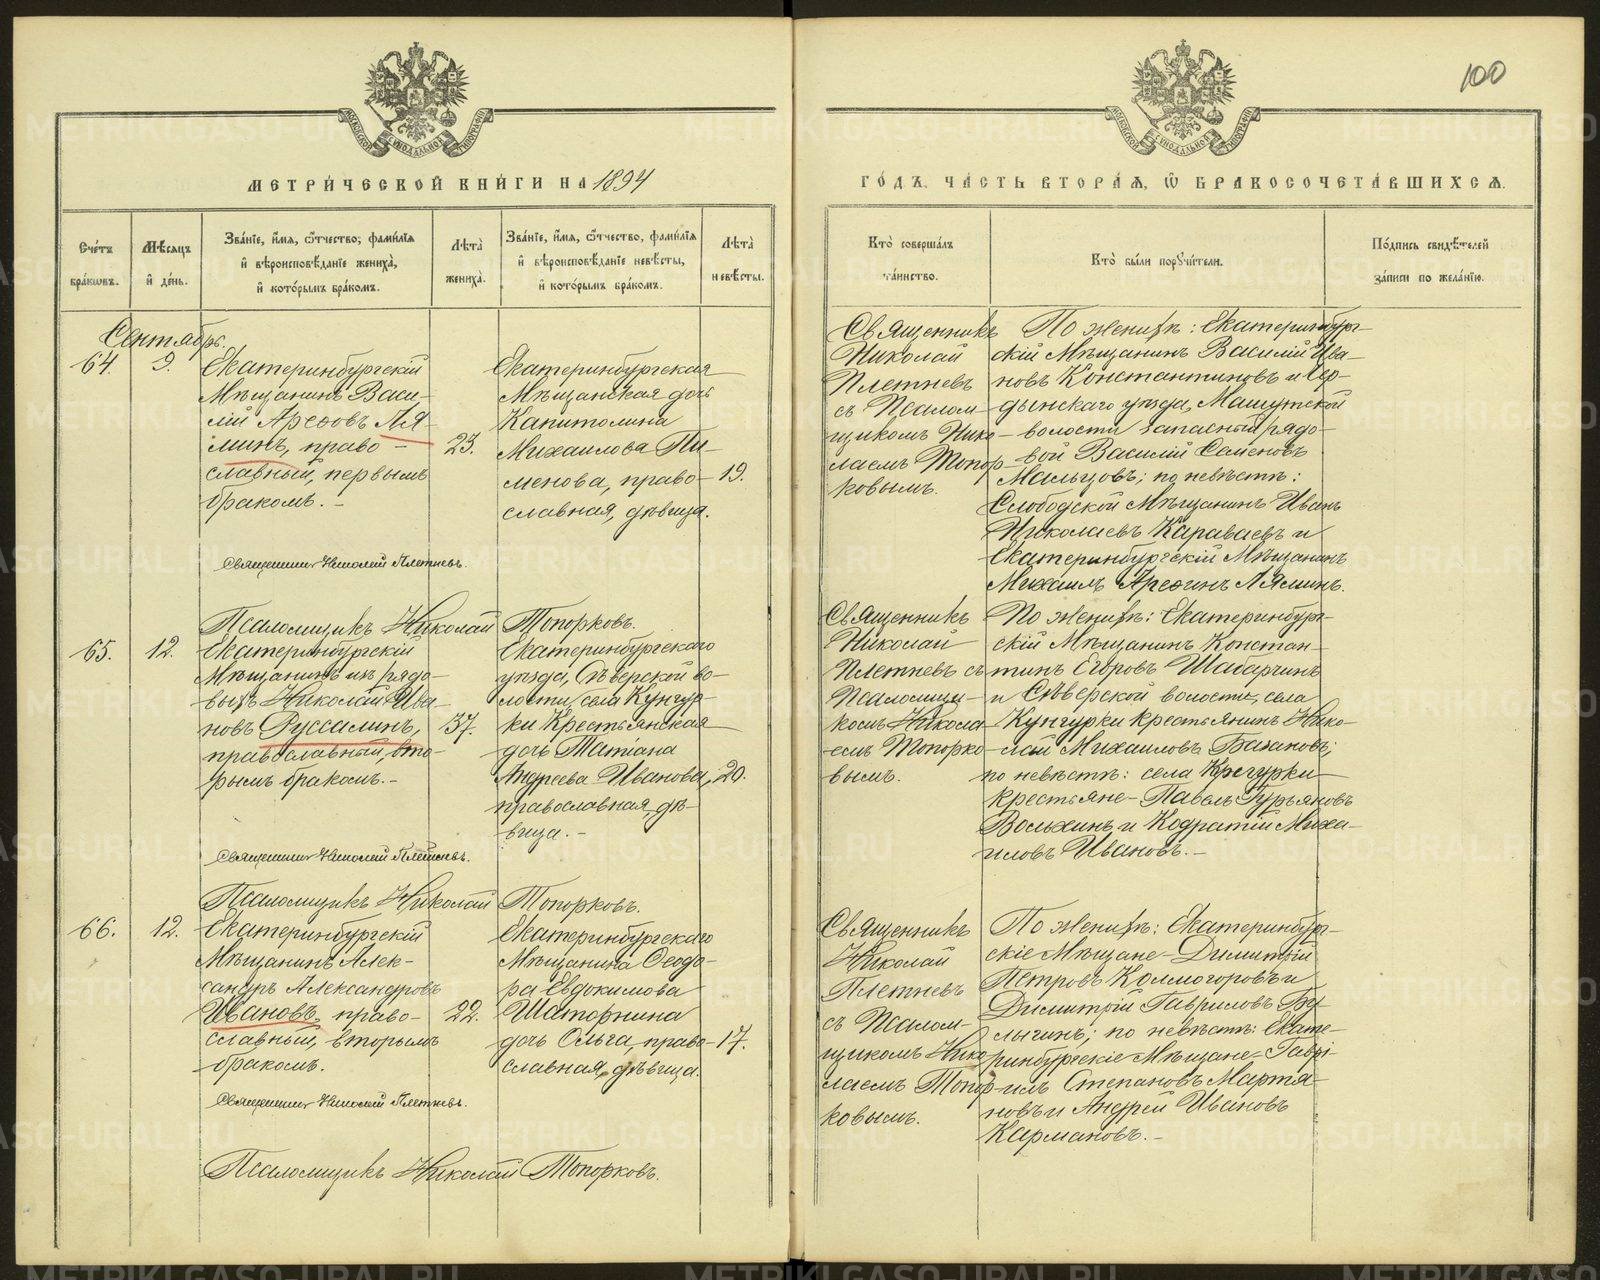 100
МЕТРИ́ЧЕСКОЙ КНИ́ГИ НА 1894
ГО́ДЪ, ЧА́СТЬ ВТОРА́Я, Ѡ҆ БРАКОСОЧЕТА́ВШИХСЯ.
Сче́тъ
бра́ковъ.
Мѣ́сяцъ
и҆ де́нь.
Зва́нїе, и҆́мя, ѻ҆́тчество, фами́лїя
и҆ вѣроисповѣ́данїе жениха̀,
и҆ кото́рымъ бра́комъ.
Лѣта̀
жениха̀.
Зва́нїе, и҆́мя, ѻ҆́тчество, фами́лїя
и҆ вѣроисповѣ́данїе невѣ́сты,
и҆ кото́рымъ бра́комъ.
Лѣта̀
невѣ́сты.
Кто̀ соверша́лъ
та́инство.
Кто̀ бы́ли поручи́тели.
По́дпись свидѣ́телей
за́писи по жела́нїю.
Сентябрь.
64.
9.
Екатеринбургскій
Мѣщанинъ Васи-
лій Арефовъ Ля-
минъ, право-
славный, первымъ
бракомъ. -
23.
Екатеринбургская
Мѣщанская дочь
Капитолина
Михаилова Пи-
менова, право-
славная, дѣвица.
19.
Священникъ
Николай
Плетневъ
съ Псалом-
щикомъ Нико-
лаемъ Топор-
ковымъ.
По женихѣ: Екатеринбург-
скій Мѣщанинъ Василій Ива-
новъ Константиновъ и Чер-
дынскаго уѣзда,
волости запасный рядо-
вой Василій Семеновъ
Мальцовъ; по невѣстѣ:
Слободской Мѣщанинъ Иванъ
Николаевъ Караваевъ и
Екатеринбургскій Мѣщанинъ
Михаилъ Арефинъ Лялинъ.
Священникъ Николай Плетневъ.
Псаломщикъ Николай Топорковъ.
65.
12.
Екатеринбургскій
Мѣщанинъ изъ рядо-
выхъ Николай Ива-
новъ Руссалинъ,
православный, вто-
рымъ бракомъ. -
37.
Екатеринбургскаго
уѣзда, Сѣверской во-
лости, села Кунгур-
ки Крестьянская
дочь Татіана
Андреева Иванова,
православная, дѣ-
вица. -
20.
Священникъ
Николай
Плетневъ съ
Псаломщи-
комъ Никола-
емъ Топорко-
вымъ.
По женихѣ: Екатеринбург-
скій Мѣщанинъ Констан-
тинъ Егоровъ Шабарчинъ
и Сѣверской волости, села
Кунгурки крестьянинъ Нико-
лай Михаиловъ Базановъ;
по невѣстѣ: села Кунгурки
крестьяне - Павелъ Гурьяновъ
Вольхинъ и Кодратій Миха-
иловъ Ивановъ. -
Священникъ Николай Плетневъ.
Псаломщикъ Николай Топорковъ.
66.
12.
Екатеринбургскій
Мѣщанинъ Алек-
сандръ Александровъ
Ивановъ, право-
славный, вторымъ
бракомъ.
22.
Екатеринбургскаго
Мѣщанина Ѳеодо-
ра Евдокимова
Шаторнина
дочь Ольга, право-
славная, дѣвица.
17.
Священникъ
Николай
Плетневъ
съ Псалом-
щикомъ Нико-
лаемъ Топор-
ковымъ.
По женихѣ: Екатеринбург-
скіе Мѣщане - Димитрій
Петровъ Колмогоровъ и
Димитрій Гавриловъ Бу-
лыгинъ; по невѣстѣ: Екате-
ринбургскіе Мѣщане - Гаврі-
илъ Степановъ Мартья-
новъ и Андрей Ивановъ
Кармановъ. -
Священникъ Николай Плетневъ.
Псаломщикъ Николай Топорковъ.